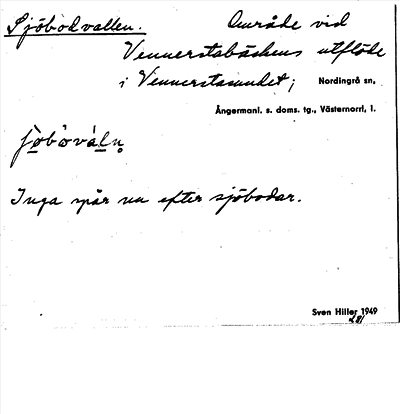 Sjöbodvallen. Område vid
Vennerstabäckens utflöde
i Vennerstasundet; Nordingrå sn,
Ångermanl. s. doms. tg., Västernorrl, l.
Inga spår nu efter sjöbodar.
Sven Hiller 1949
281